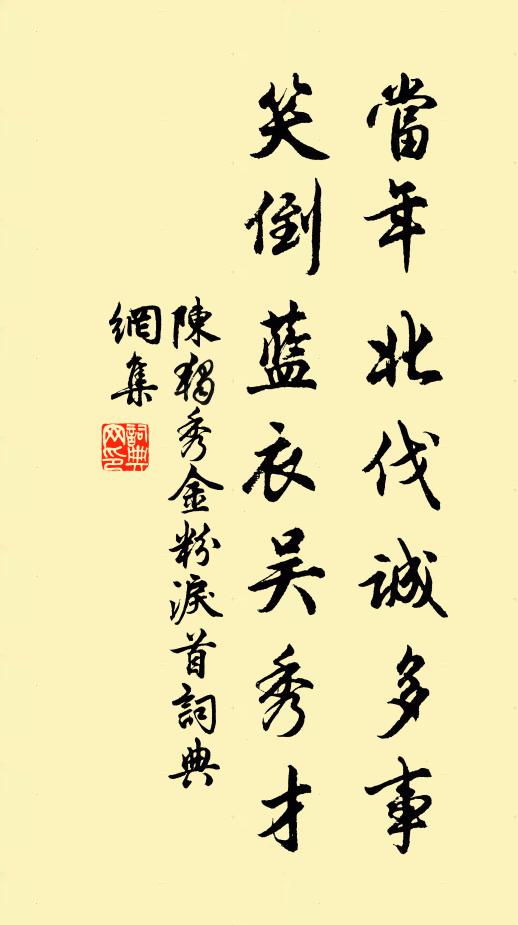 當年北伐誠多事
笑倒藍衣吳秀才
陳獨秀金粉淚首詞典
網集
詞典
網印